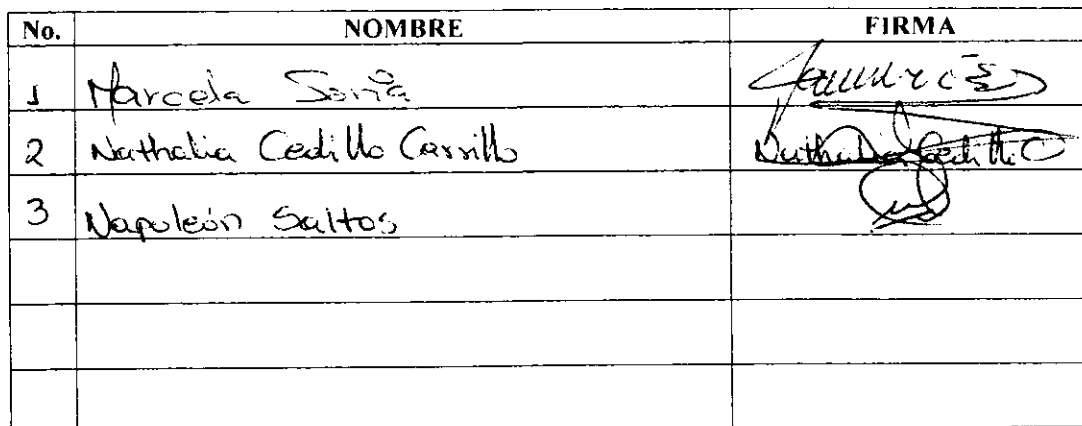 No. NOMBRE FIRMA
1 Marcela Soria
2 Nathalia Cedillo Carrillo Nathalia Cedillo C
3 Napoleón Saltos